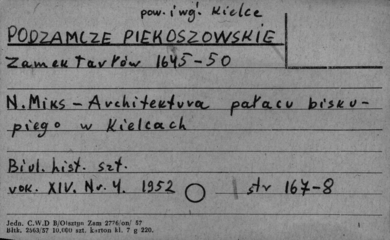 pow. i wg. Kielce
PODZAMCZE PIEKOSZOWSKIE
Zamek Tarłów 1645-50
N. Miks - Architektura pałacu bisku-
piego w Kielcach
Biul. hist. szt.
rok. XIV. Nr. 4. 1952 str 167-8
Jedn. C.W.D B/Osztpe Zam 2776/on/ 57
Bltk. 2563/57 10,000 szt. karton kl. 7 g 220. 1